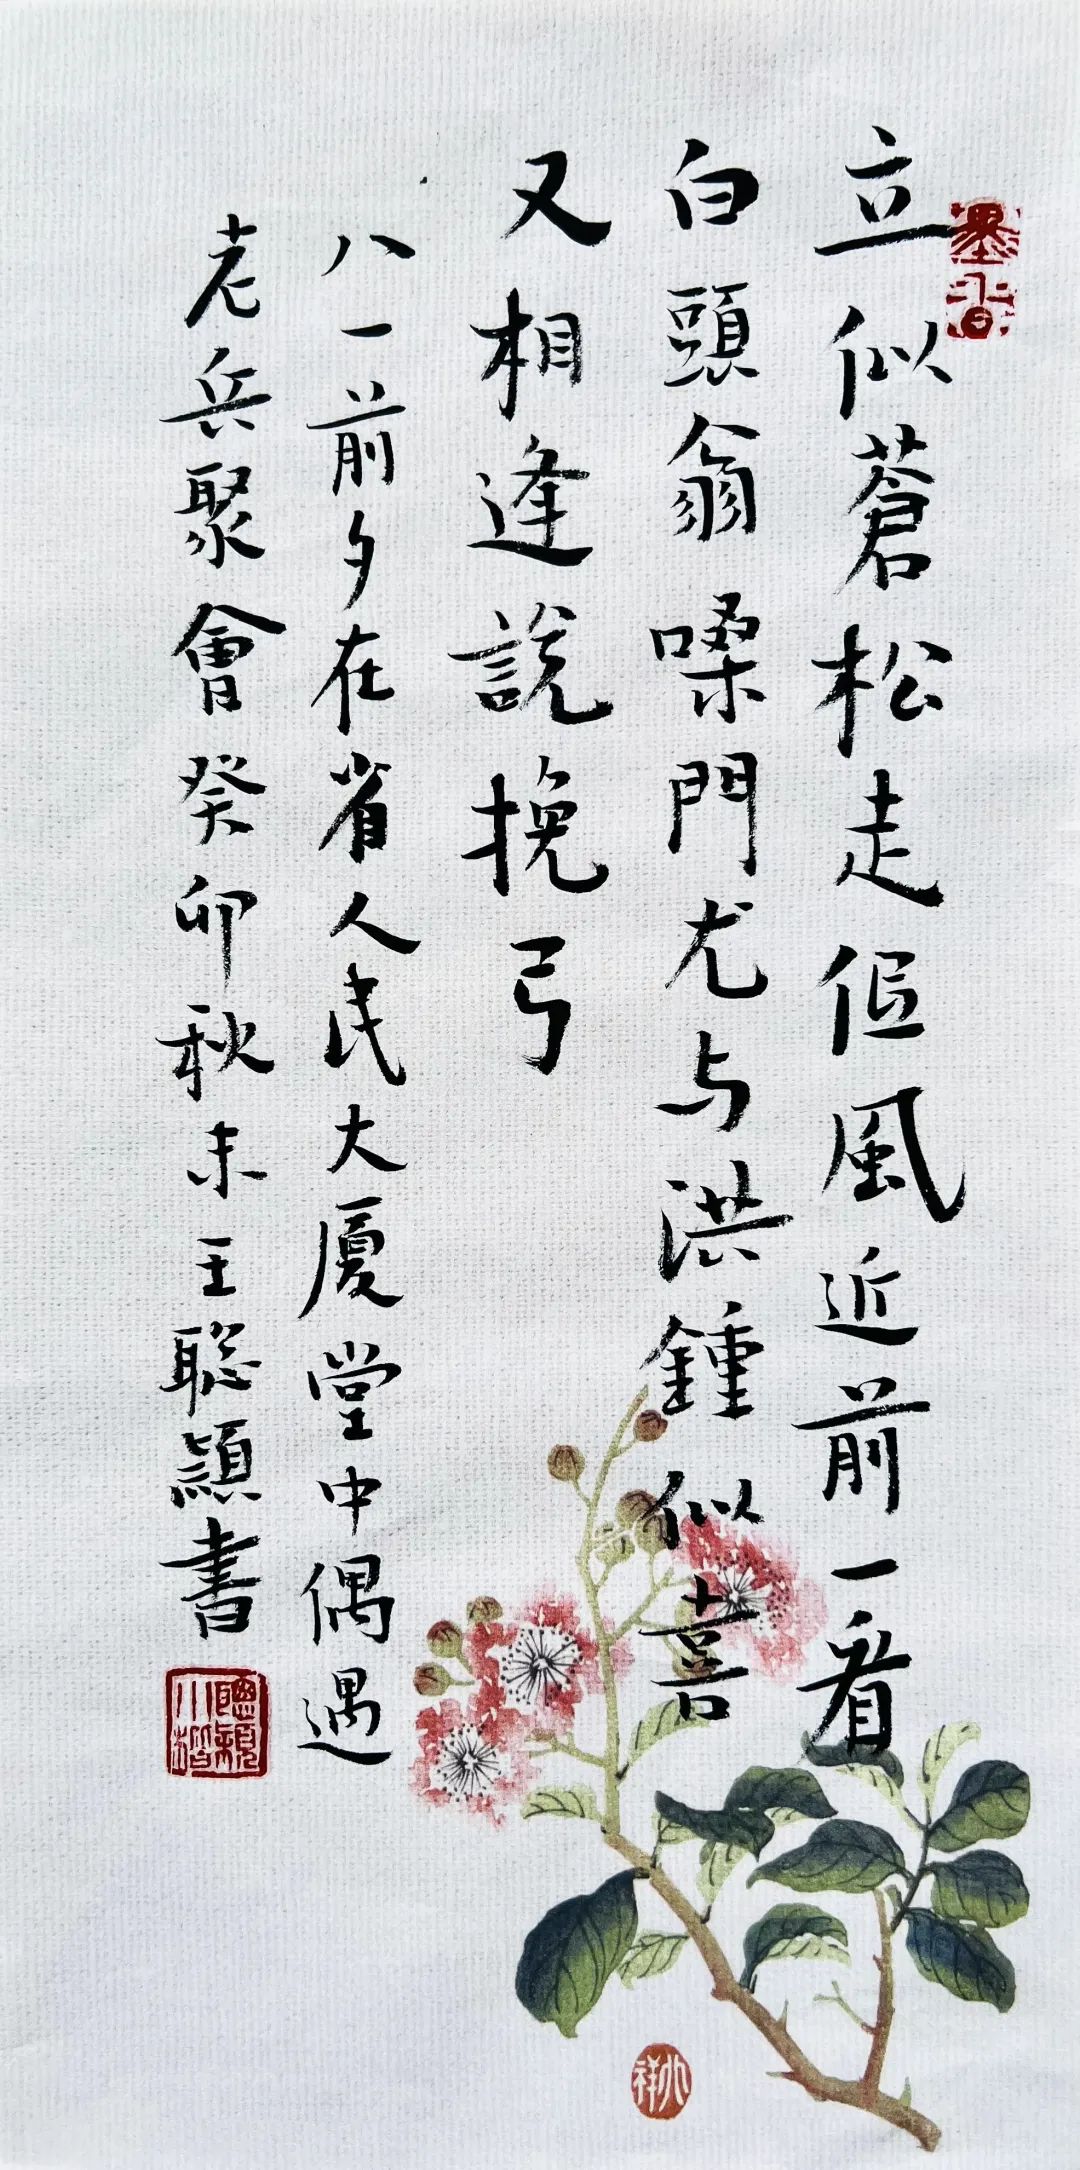 立似蒼松走佀風近前一看
白頭翁嗓門尤与洪鍾似喜
又相逢說挽弓
八一前夕在省人民大廈堂中偶遇
老兵聚會癸卯秋末王聡穎書
墨香
聰穎小楷